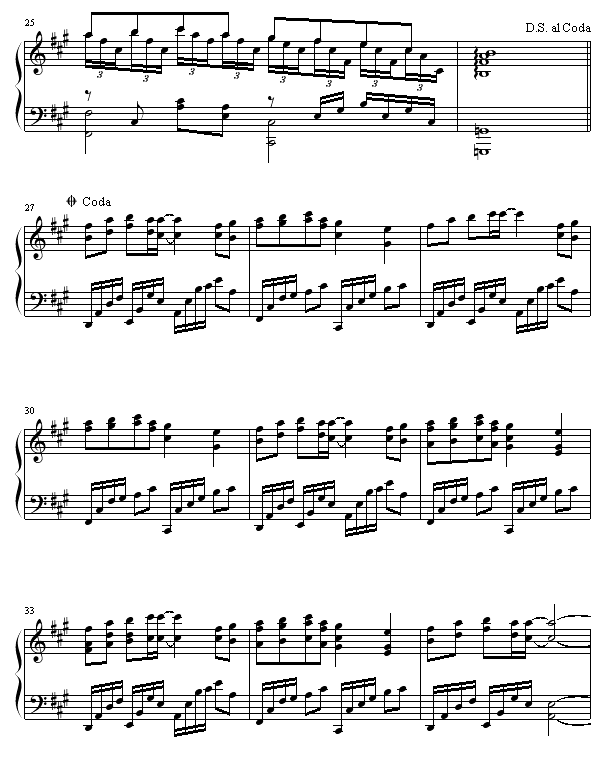 25
D.S. al Coda
3 3 3 3 3 3 3 3
27
Coda
30
33